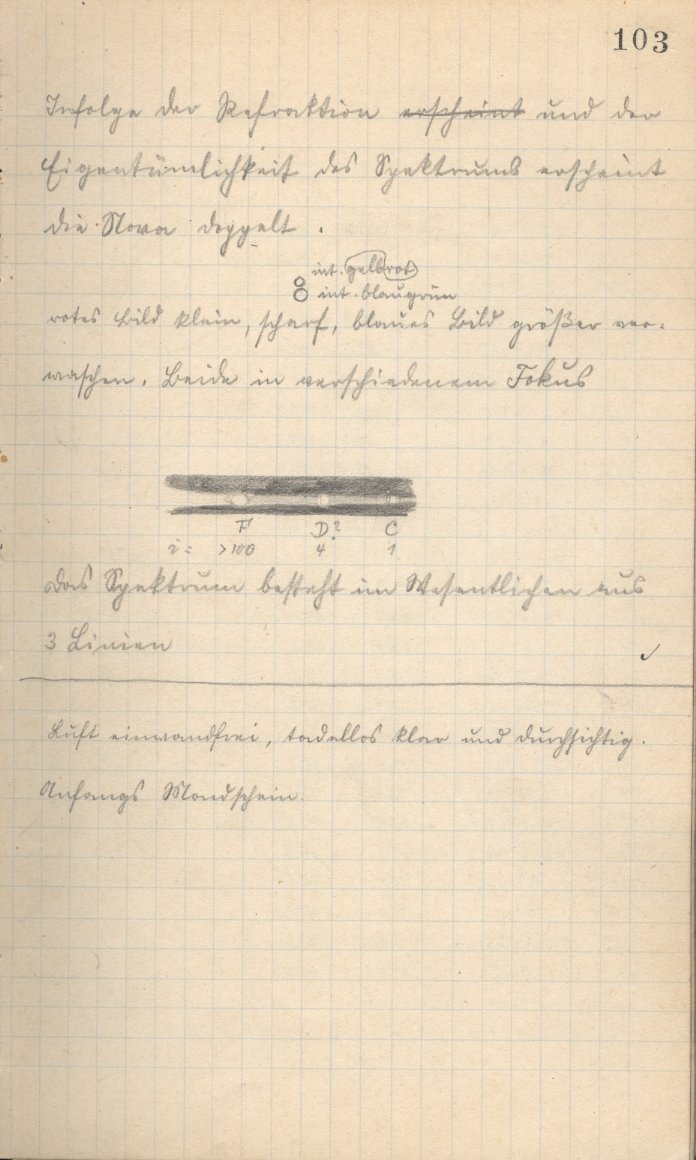 103
Infolge der Refraktion erscheint und der
Eigentümlichkeit des Spektrums erscheint
die Nova doppelt.
int. gelbrot
int. blaugrün
rotes Bild klein, scharf, blaues Bild größer ver-
waschen. Beide in verschiedenem Fokus
F D? C
i = >100 4 1
Das Spektrum besteht im Wesentlichen aus
3 Linien
Luft einwandfrei, tadellos klar und durchsichtig.
Anfangs Mondschein.